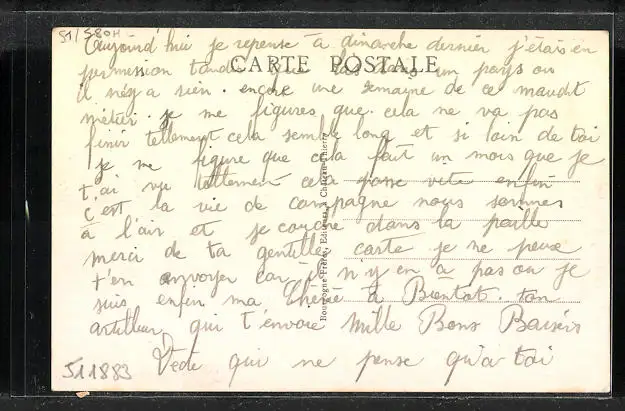 51/580H
Aujourd'hui je repense à dimanche dernier j'étais en
CARTE POSTALE
permission tandis que las dans un pays ou
il n'éy a rien. encore une semaine de ce maudit
métier. je me figures que cela ne va pas
finir tellement cela semble long et si loin de toi
je me figure que cela fait un mois que je
t'ai vu tellement cela passe vite enfin
c'est la vie de campagne nous sommes
à l'air et je couche dans la paille
merci de ta gentille carte je ne peux
t'en envoyer car il n'y en à pas ou je
suis enfin ma Chérie à Bientot. ton
artilleur, qui t'envoie Mille Bons Baisers
qui ne pense qu'a toi
511883
Bourgogne Frères, Editeurs à Chateau-Thierry